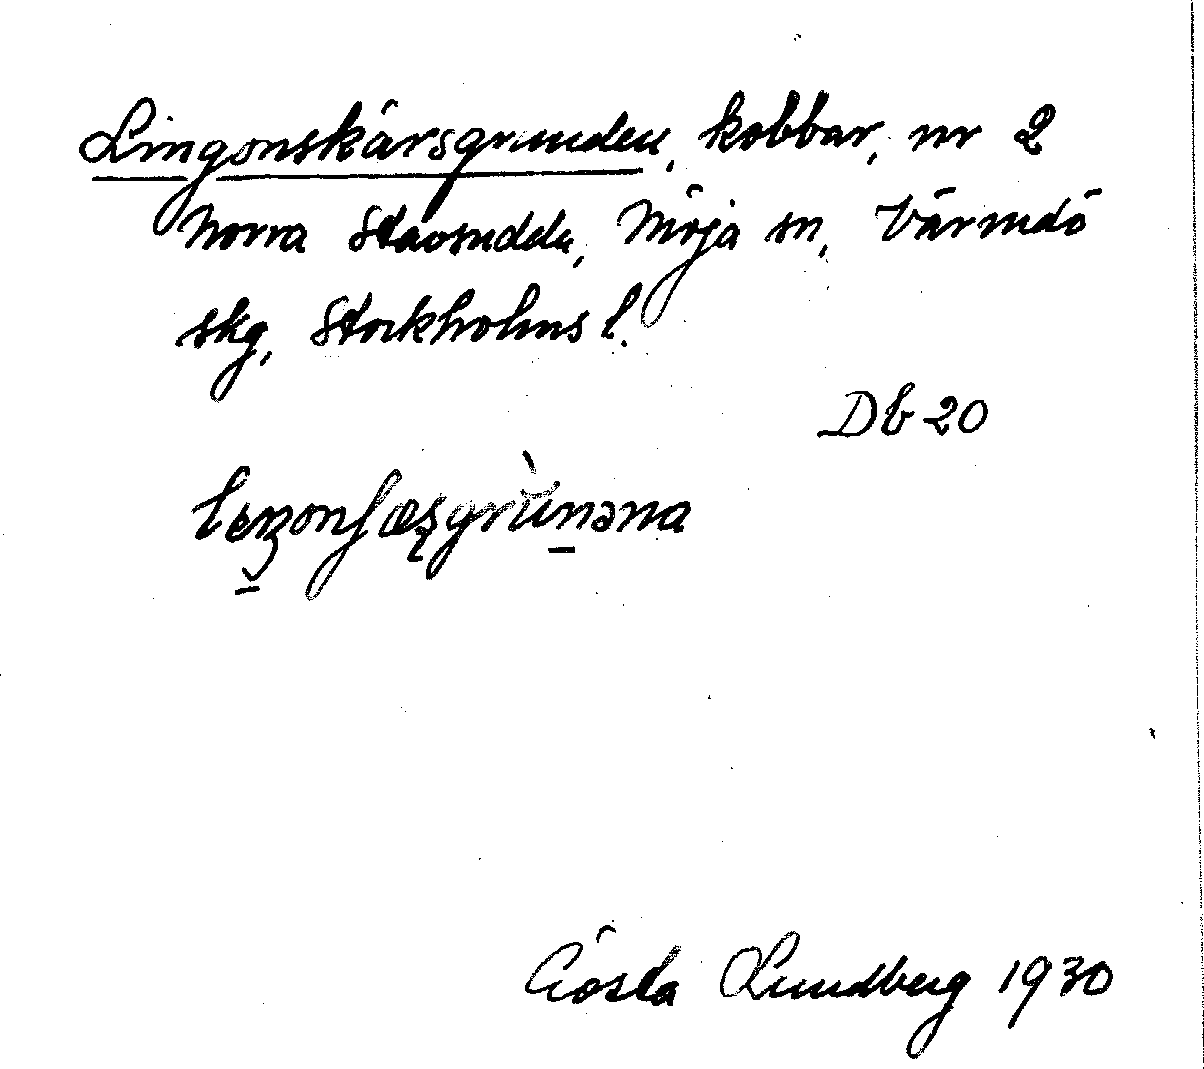 Lingonskärsgrunden, kobbar, nr 2
Norra Stavsudda, Möja sn, Värmdö
skg, Stockholms l.
Db 20
Gösta Lundberg 1930